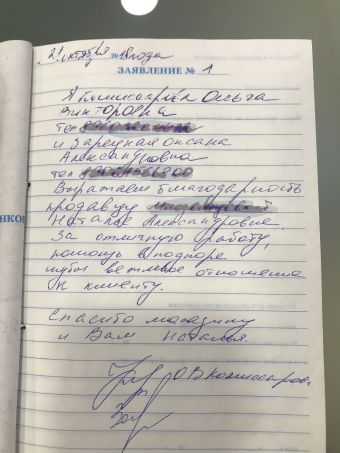 21 октября 2018 года
ЗАЯВЛЕНИЕ № 1
Я Комиссарова Ольга
Викторовна
тел
и Зарецкая Оксана
Александровна
тел
Выражаем благодарность
продавцу
Наталье Александровне.
За отличную работу,
помощь в подборе
шубы ветливое отношение
к клиенту.
Спасибо магазину
и Вам Наталья.
ОВКомиссарова